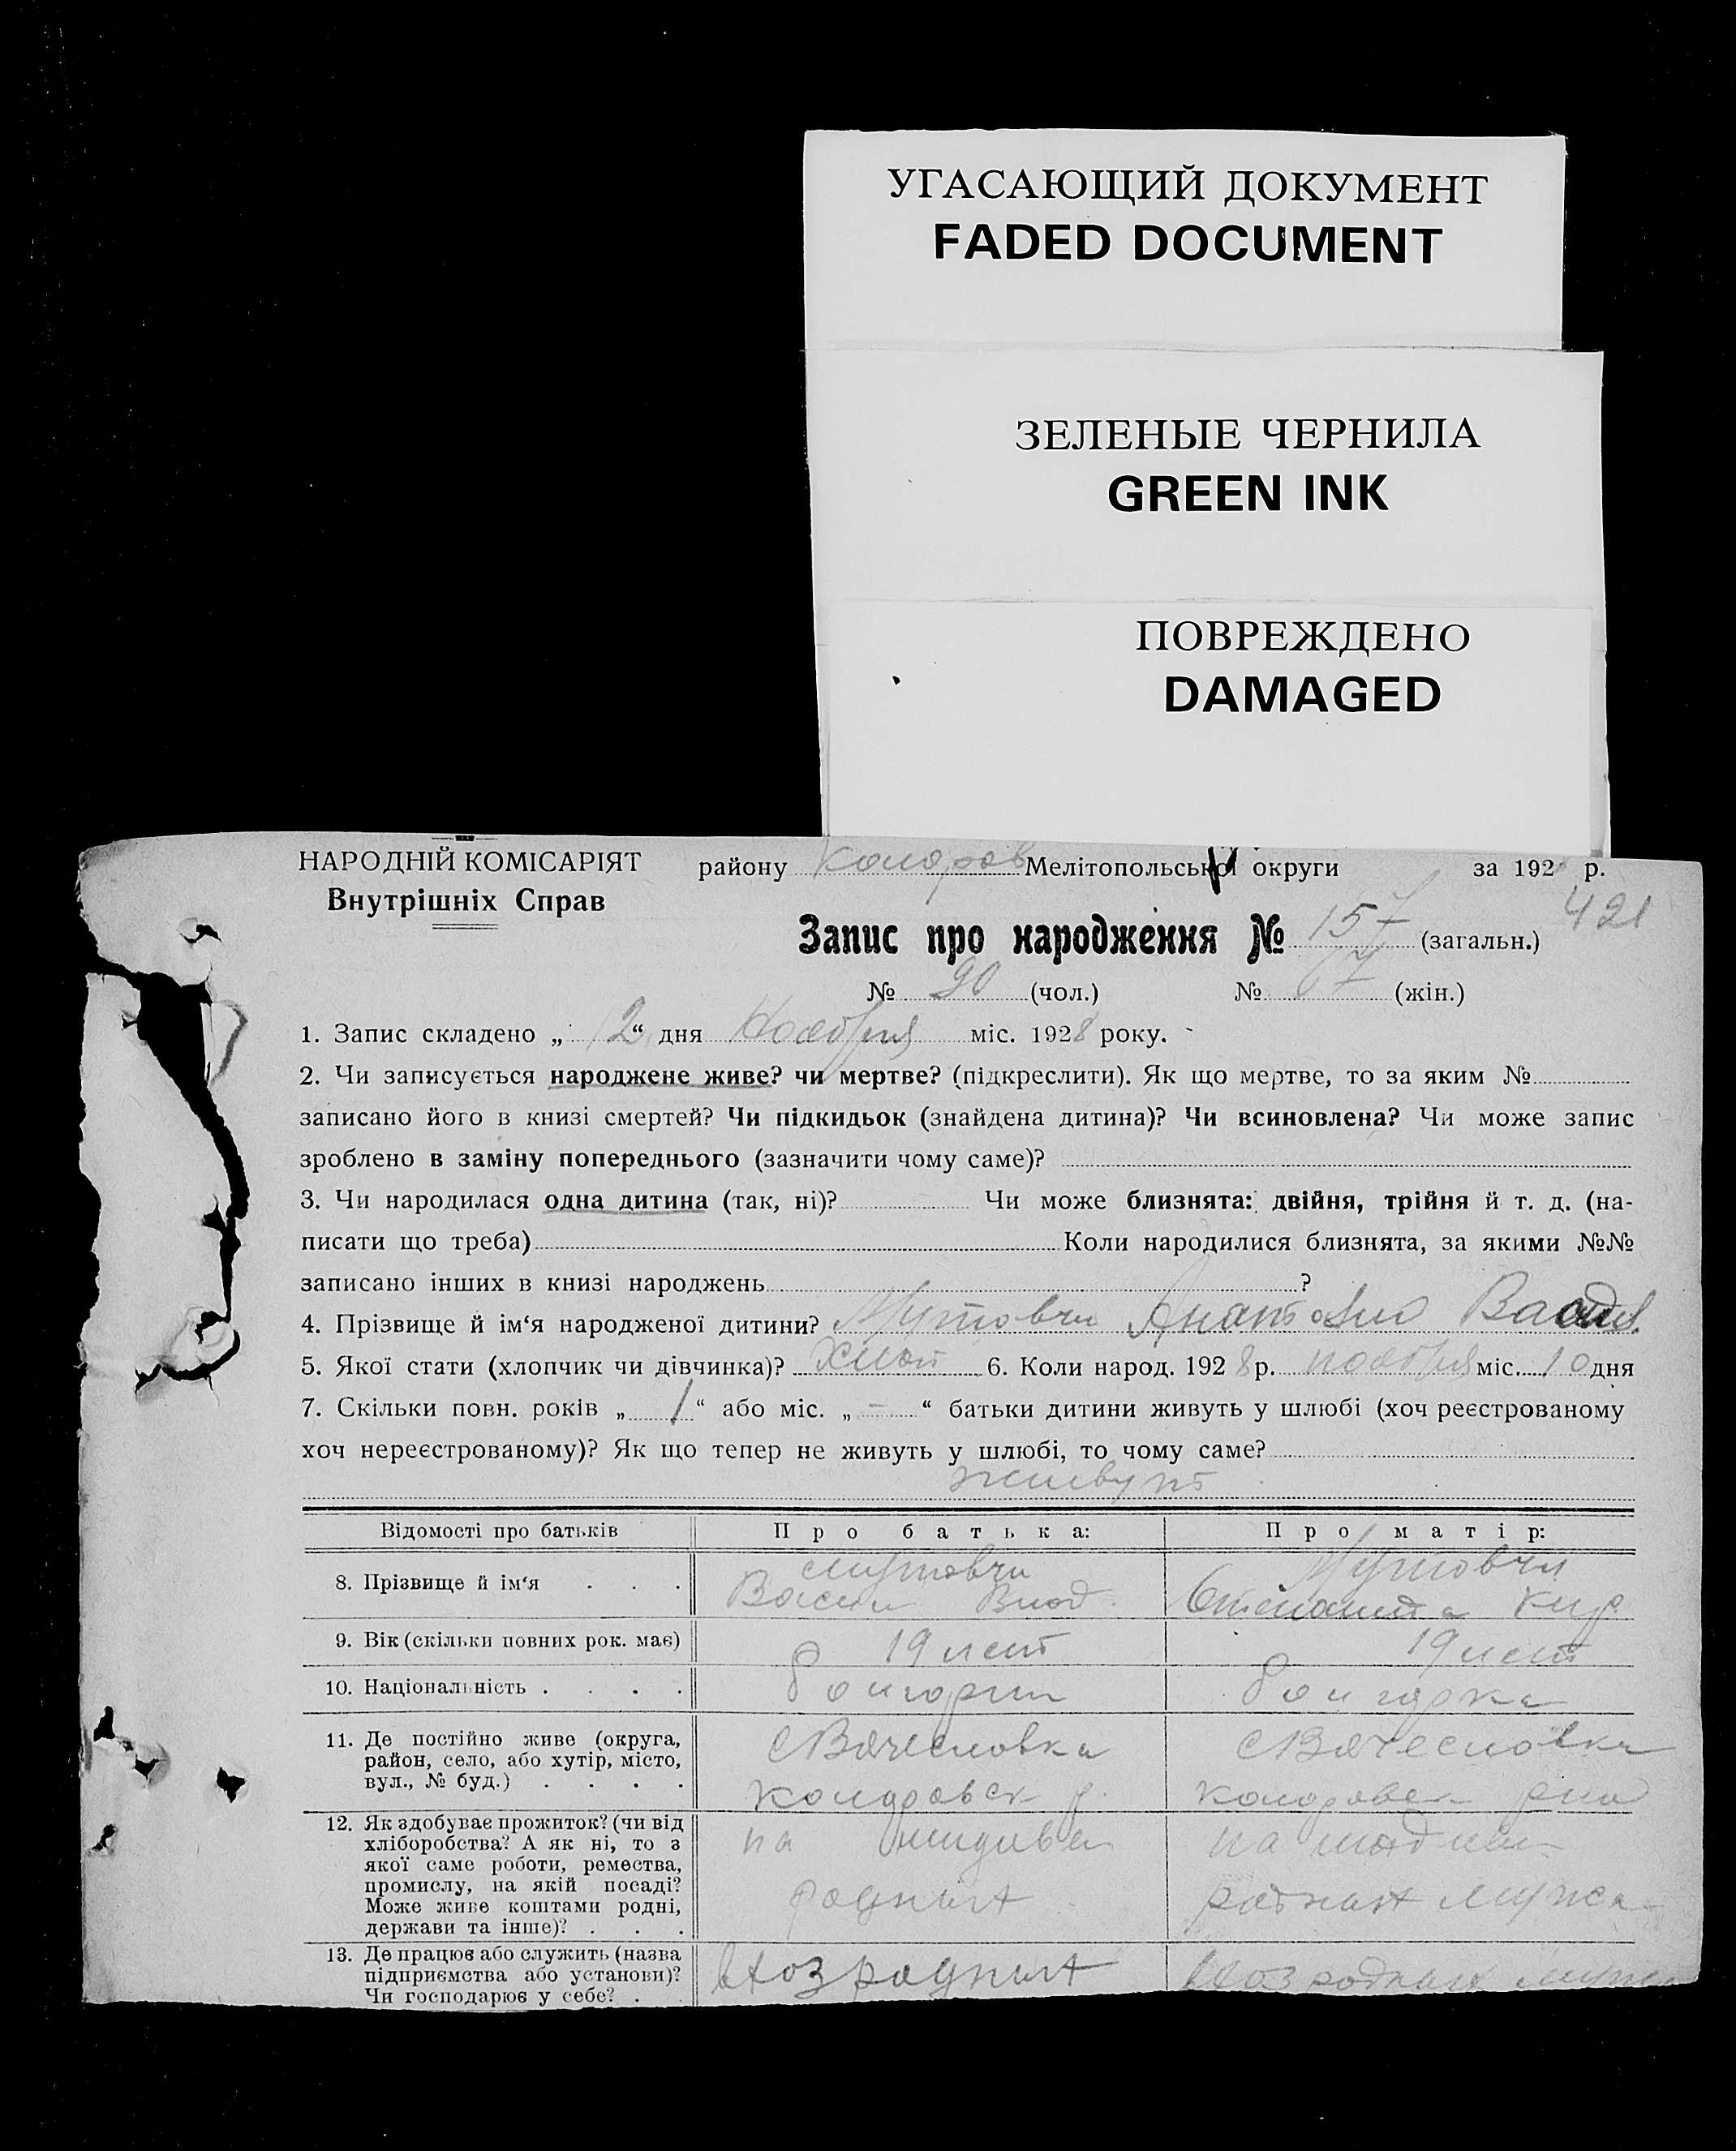 УГАСАЮЩИЙ ДОКУМЕНТ
FADED DOCUMENT
ЗЕЛЕНЫЕ ЧЕРНИЛА
GREEN INK
ПОВРЕЖДЕНО
DAMAGED
НАРОДНІЙ КОМІСАРІЯТ району Коларов Мелітопольської округи за 192 р.
Внутрішніх Справ
421
Запис про народження № 157 (загальн.)
№ 90 (чол.) № 67 (жін.)
1. Запис складено „12“ дня Ноября міс. 1928 року.
2. Чи записується народжене живе? чи мертве? (підкреслити). Як що мертве, то за яким №
записано його в книзі смертей? Чи підкидьок (знайдена дитина)? Чи всиновлена? Чи може запис
зроблено в заміну попереднього (зазначити чому саме)?
3. Чи народилася одна дитина (так, ні)? Чи може близнята: двійня, трійня й т. д. (на-
писати що треба) Коли народилися близнята, за якими №№
записано інших в книзі народжень ?
4. Прізвище й ім‘я народженої дитини? Мутовчи Анатолий Васил.
5. Якої стати (хлопчик чи дівчинка)? 6. Коли народ. 1928 р. ноября міс. 10 дня
7. Скільки повн. років „ 1 “ або міс. „ - “ батьки дитини живуть у шлюбі (хоч реєстрованому
хоч нереєстрованому)? Як що тепер не живуть у шлюбі, то чому саме?
живут
Відомості про батьків Про батька: Про матір:
8. Прізвище й ім‘я . . . Мутовчи Мутовчи
Васил Влад. Степанида Кир
9. Вік (скільки повних рок. має) 19 лет 19 лет
10. Національність . . . . болгарин болгарка
11. Де постійно живе (округа, район, село, або хутір, місто, вул., № буд.) . . . .
с Вячесловка с Вячесловка
коларовск р. коларовск рна
12. Як здобуває прожиток? (чи від
хліборобства? А як ні, то з
якої саме роботи, ремества,
промислу, на якій посаді?
Може живе коштами родні,
держави та інше)? . . .
на иждивен на иждивен
родных родных мужа
13. Де працює або служить (назва
підприємства або установи)?
Чи господарює у себе? .
в хоз родных в хоз родных мужа